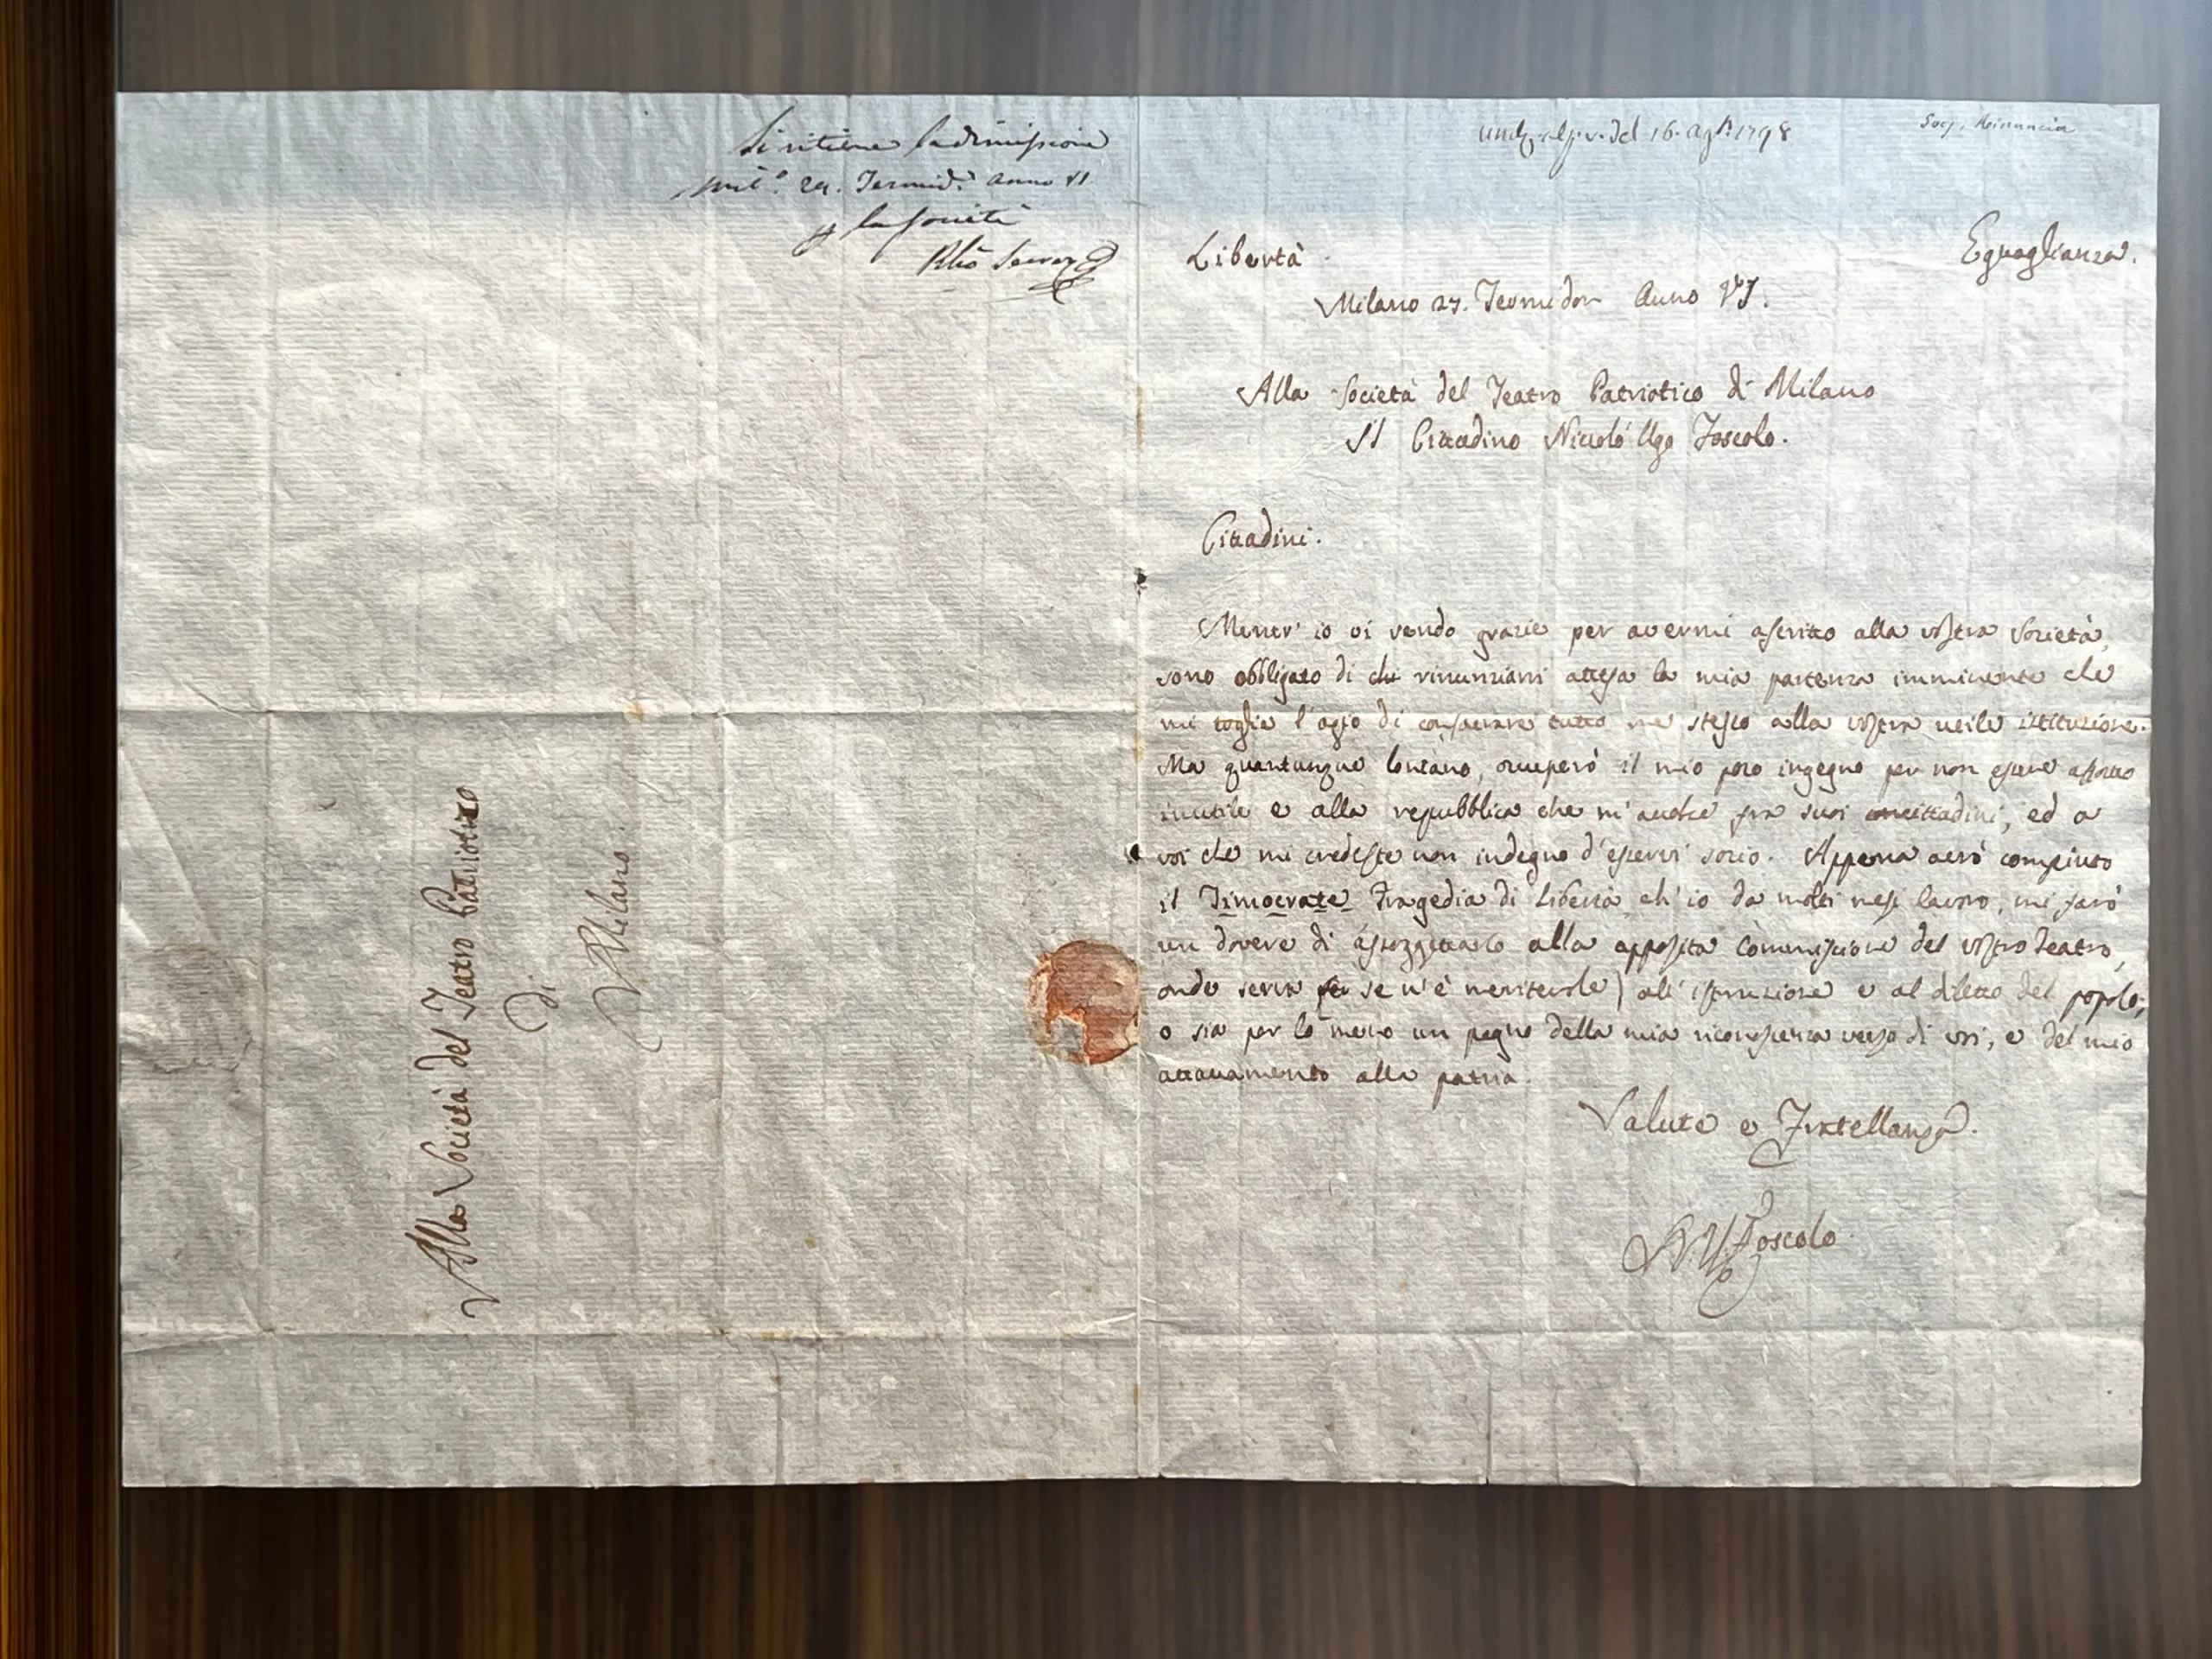 Si ritiene la dimissione
Mil.º 29. Termid.ʳ anno VI
la Società
del 16. Ag.º 1798
Rinuncia
Libertà
Eguaglianza.
Milano 27. Termidor Anno VI.
Alla Società del Teatro Patriotico di Milano
Il Cittadino Niccolò Ugo Foscolo.
Cittadini.
Mentr' io vi rendo grazie per avermi ascritto alla vostra Società,
sono obbligato di rinunziarvi attesa la mia partenza imminente che
mi toglie l'agio di consecrare tutto me stesso alla vostra utile istituzione.
Ma quantunque lontano, occuperò il mio poco ingegno per non essere affatto
inutile e alla repubblica che m'accolse fra suoi cittadini, ed a
voi che mi credeste non indegno d'esservi socio. Appena avrò compiuto
il Timocrate Tragedia di Libertà ch' io da molti mesi lavoro, mi farò
un dovere di assoggettarlo alla apposita Commissione del vostro Teatro,
onde serva se n'è meritevole) all' istruzione e al diletto del popolo;
o sia per lo meno un pegno della mia riconoscenza verso di voi, e del mio
attaccamento alla patria.
Salute e Fratellanza.
N. U. Foscolo
Alla Società del Teatro Patriotico
di
Milano.